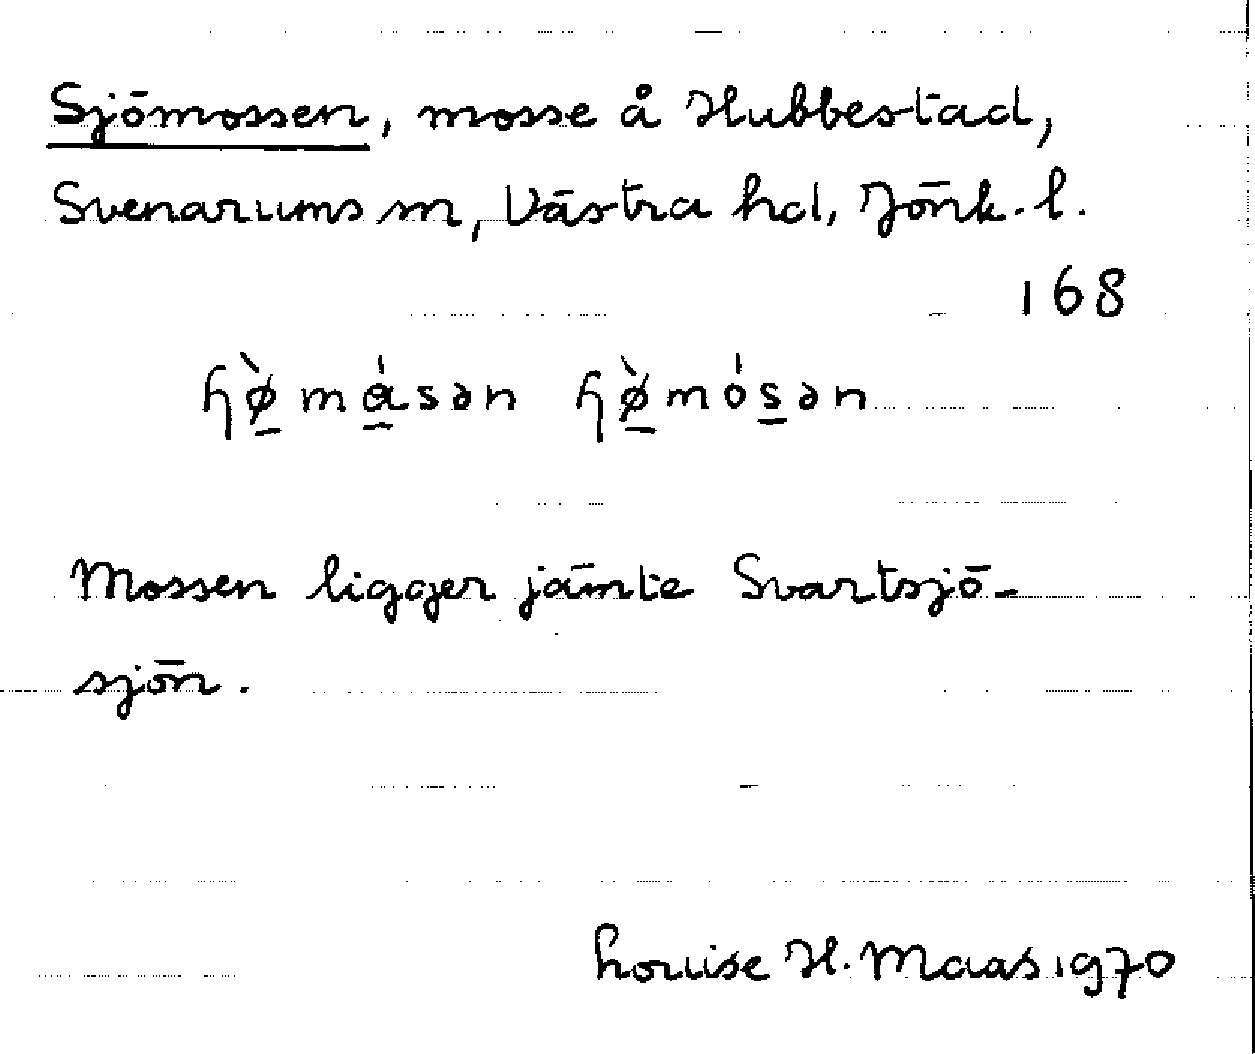 Sjömossen, mosse å Hubbestad,
Svenarums sn, Västra hd, Jönk. l.
168
ɧø̠̀mά̠sən ɧø̠̀mós̠ən
Mossen ligger jämte Svartsjö-
sjön.
Louise H. Maas 1970